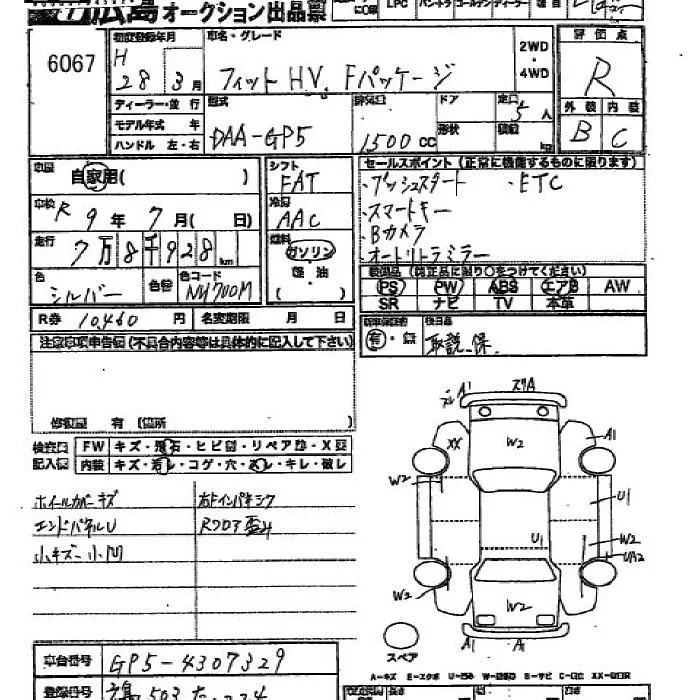 広島オークション出品票
6067
初度登録年月
H 28年 3月
車名・グレード
フィットHV Fパッケージ
2WD
・
4WD
評価点
R
外装 内装
B C
ディーラー・並行
モデル年式 年
ハンドル 左・右
型式
DAA-GP5
排気量
1500 CC
ドア
形状
定員
5人
積載
kg
車歴
自家用( )
シフト
FAT
セールスポイント(正常に機能するものに限ります)
・プッシュスタート ・ETC
・スマートキー
・Bカメラ
・オートリトラミラー
車検
R 9年 7月( 日)
冷房
AAC
走行
7万8千928km
燃料
ガソリン
軽・油
( )
色
シルバー
色替
色コード
NH700M
装備品(純正品に限り○をつけてください)
PS PW ABS エアB AW
SR ナビ TV 本革
R券 10,460 円
名変期限 月 日
新車保証書
有・無
後日品
取説、保
注意事項申告欄(不具合内容等は具体的に記入して下さい)
修復歴 有 (箇所
検査員
記入欄
FW キズ・飛石・ヒビ割・リペア跡・X要
内装 キズ・汚レ・コゲ・穴・スレ・キレ・破レ
ホイールカバーキズ
エンドパネルU
小キズ 小凹
右Fインパネシワ
Rフロア歪み
A1
スリA
XX
W2
A1
W2
U1
U1
W2
UA2
W2
W2
A1
A1
スペア
A-キズ E-エクボ
車台番号
GP5-4307329
登録番号